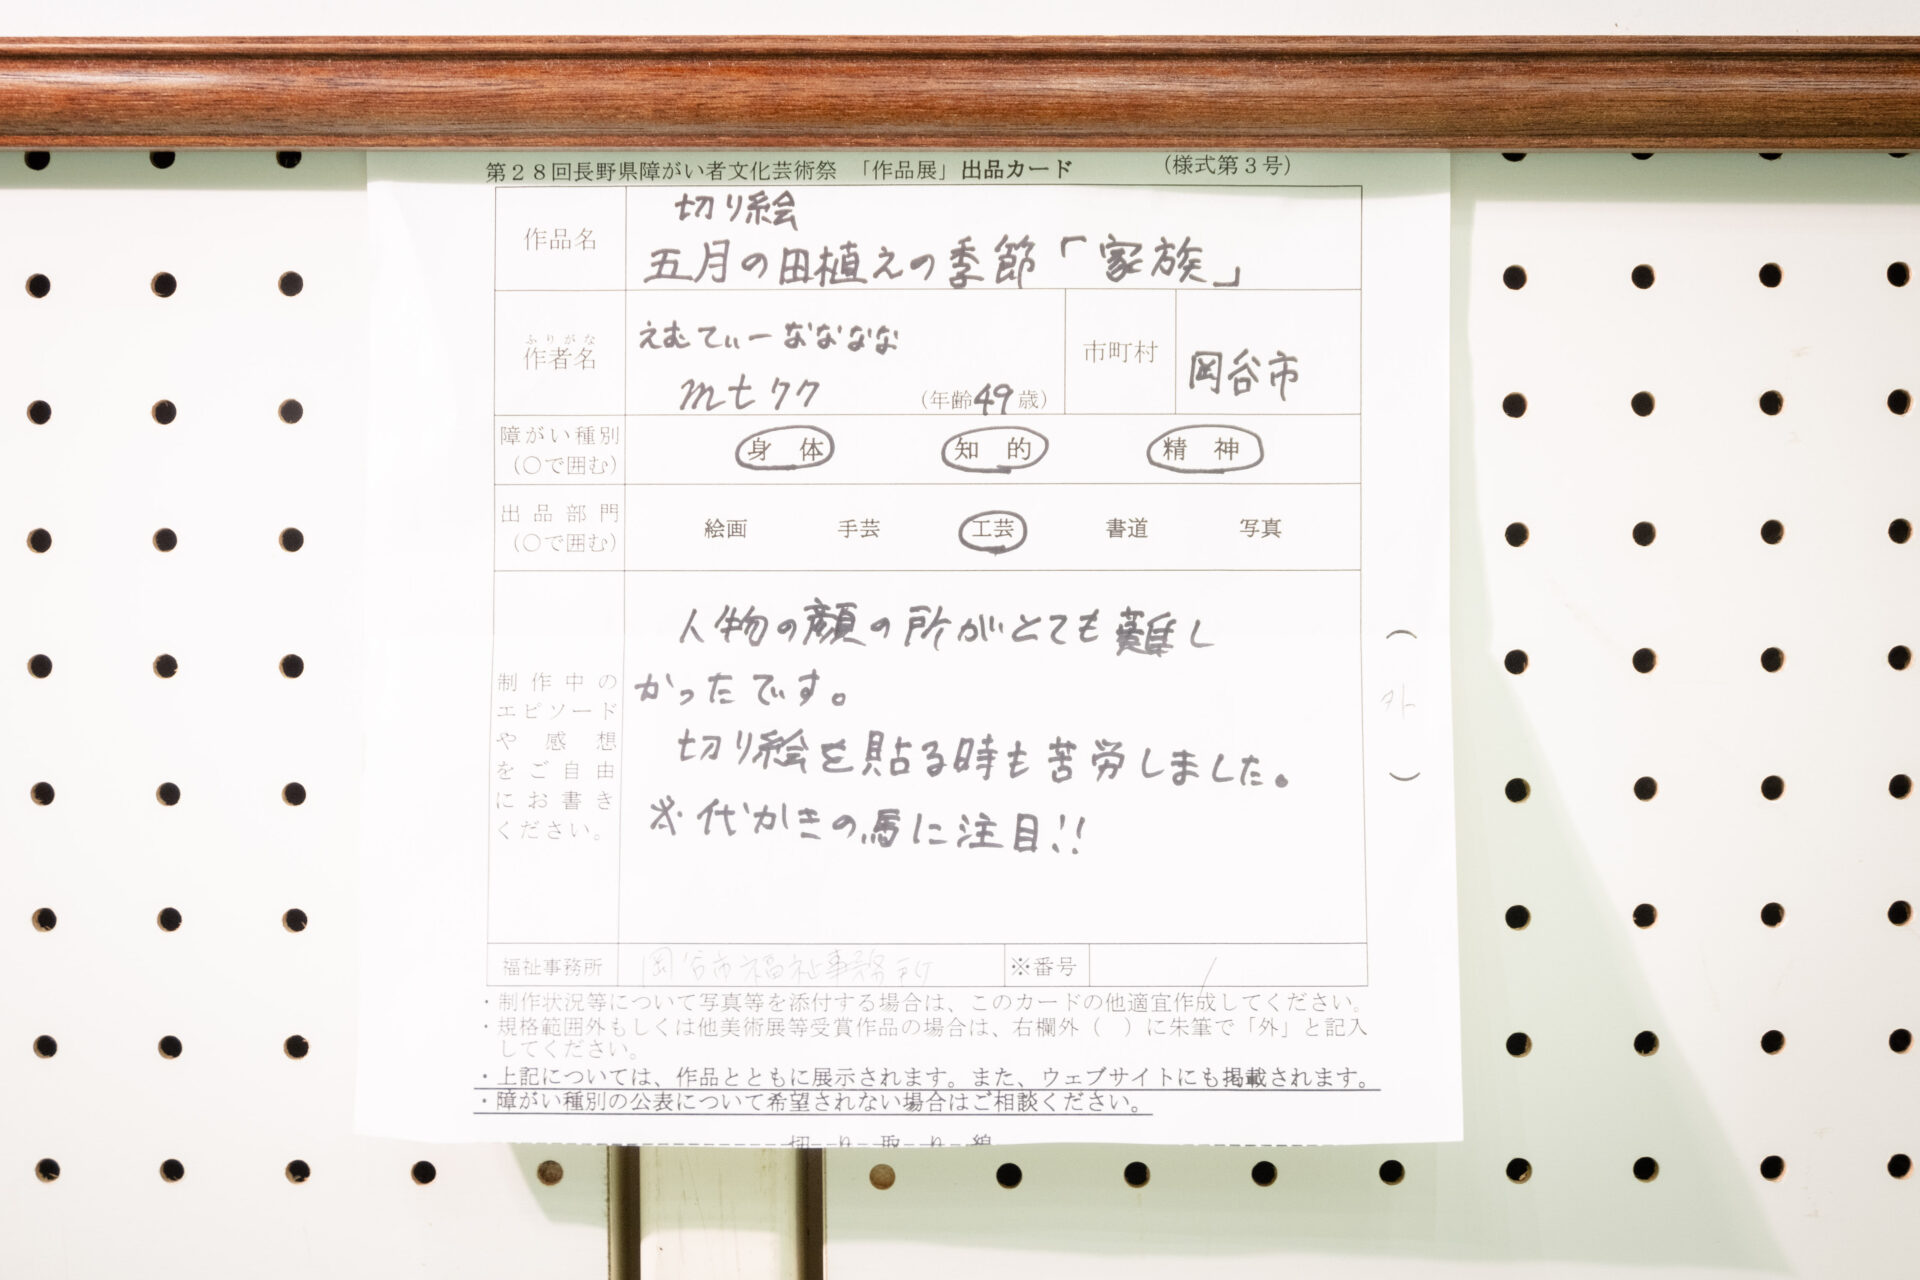 第28回長野県障がい者文化芸術祭 「作品展」出品カード (様式第3号)
作品名
切り絵
五月の田植えの季節「家族」
ふりがな
作者名
えむてぃーなななな
mt77
(年齢49歳)
市町村
岡谷市
障がい種別
(○で囲む)
身体 知的 精神
出品部門
(○で囲む)
絵画 手芸 工芸 書道 写真
制作中の
エピソード
や感想
をご自由
にお書き
ください。
人物の顔の所がとても難し
かったです。
切り絵を貼る時も苦労しました。
※代かきの馬に注目!!
(外)
福祉事務所
岡谷市福祉事務所
※番号
・制作状況等について写真等を添付する場合は、このカードの他適宜作成してください。
・規格範囲外もしくは他美術展等受賞作品の場合は、右欄外( )に朱筆で「外」と記入
してください。
・上記については、作品とともに展示されます。また、ウェブサイトにも掲載されます。
・障がい種別の公表について希望されない場合はご相談ください。
切り取り線